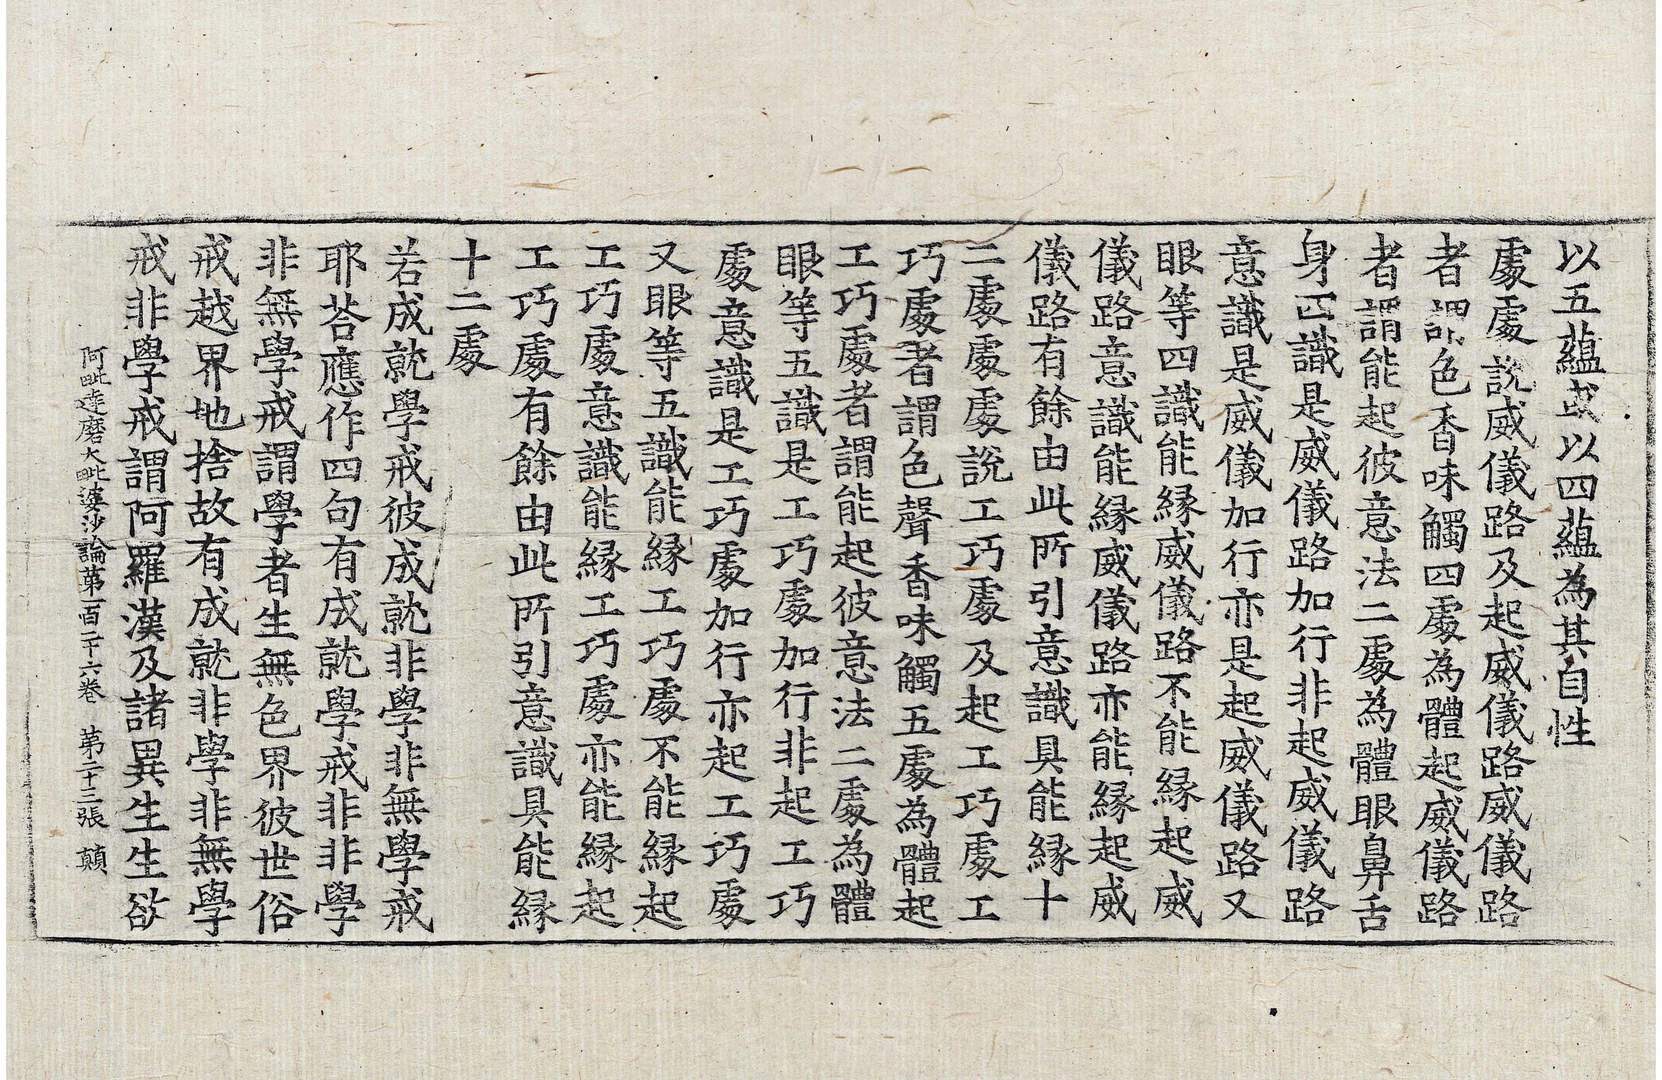 以五蘊或以四蘊為其自性
處處說威儀路及起威儀路威儀路
者謂色香味觸四處為體起威儀路
者謂能起彼意法二處為體眼鼻舌
身四識是威儀路加行非起威儀路
意識是威儀加行亦是起威儀路又
眼等四識能縁威儀路不能縁起威
儀路意識能縁威儀路亦能縁起威
儀路有餘由此所引意識具能縁十
二處處處說工巧處及起工巧處工
巧處者謂色聲香味觸五處為體起
工巧處者謂能起彼意法二處為體
眼等五識是工巧處加行非起工巧
處意識是工巧處加行亦起工巧處
又眼等五識能縁工巧處不能縁起
工巧處意識能縁工巧處亦能縁起
工巧處有餘由此所引意識具能縁
十二處
若成就學戒彼成就非學非無學戒
耶荅應作四句有成就學戒非非學
非無學戒謂學者生無色界彼世俗
戒越界地捨故有成就非學非無學
戒非學戒謂阿羅漢及諸異生生欲
阿毗達磨大毗婆沙論第一百二十六卷 第二十三張 顛